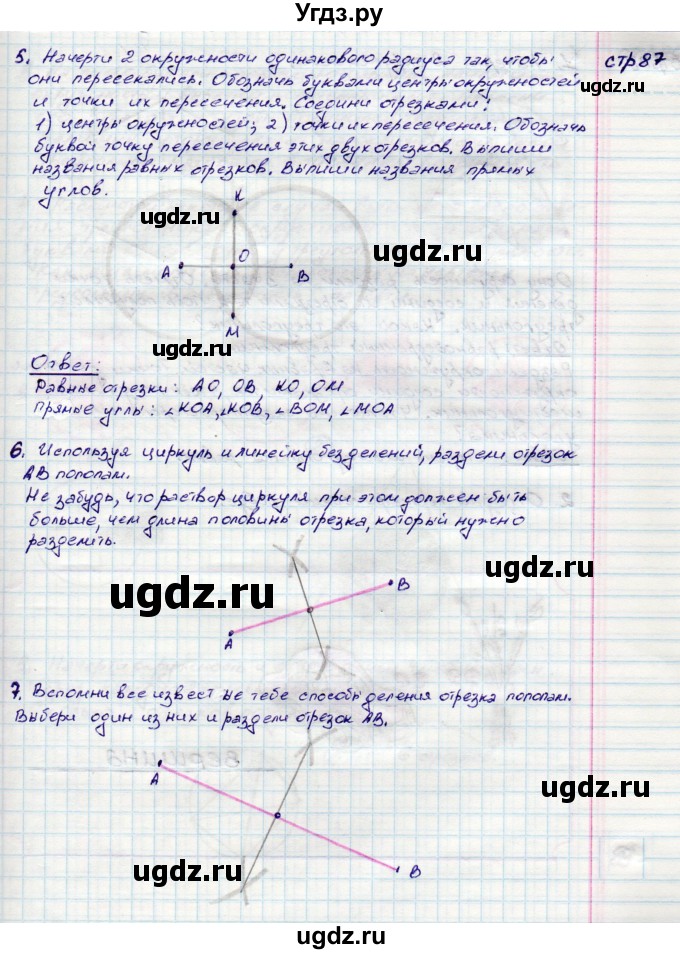 Угдз.ру
стр 87
5. Начерти 2 окружности одинакового радиуса так, чтобы
они пересекались. Обозначь буквами центры окружностей
и точки их пересечения. Соедини отрезками:
1) центры окружностей; 2) точки их пересечения. Обозначь
буквой точку пересечения этих двух отрезков. Выпиши
названия равных отрезков. Выпиши названия прямых
углов.
К
ugdz.ru
ugdz.ru
ugdz.ru
А
О
В
М
ugdz.ru
ugdz.ru
Ответ:
Равные отрезки: АО, ОВ, КО, ОМ
Прямые углы: ∠КОА, ∠КОВ, ∠ВОМ, ∠МОА
6. Используя циркуль и линейку без делений, раздели отрезок
АВ пополам.
Не забудь, что раствор циркуля при этом должен быть
больше, чем длина половины отрезка, который нужно
разделить.
ugdz.ru
ugdz.ru
В
А
7. Вспомни все извест ые тебе способы деления отрезка пополам.
Выбери один из них и раздели отрезок АВ.
А
ugdz.ru
В
ugdz.ru
ugdz.ru
ugdz.ru